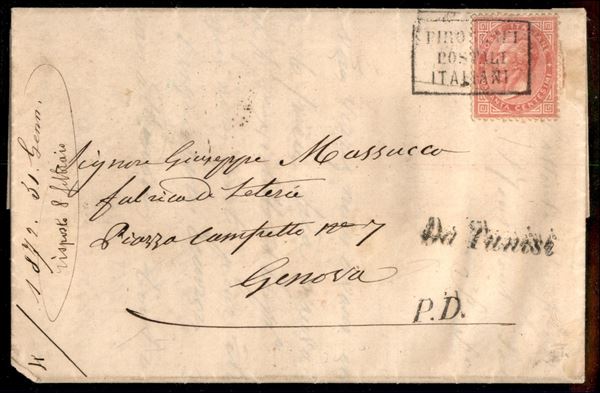 PIROSCAFI
POSTALI
ITALIANI
CENTESIMI
Signore Giuseppe Massucco
fabrica di Seterie
Piazza Campetto nº 7
Genova
Da Tunisi
P.D.
1872. 31. Genn.
risposto 8 febbraio